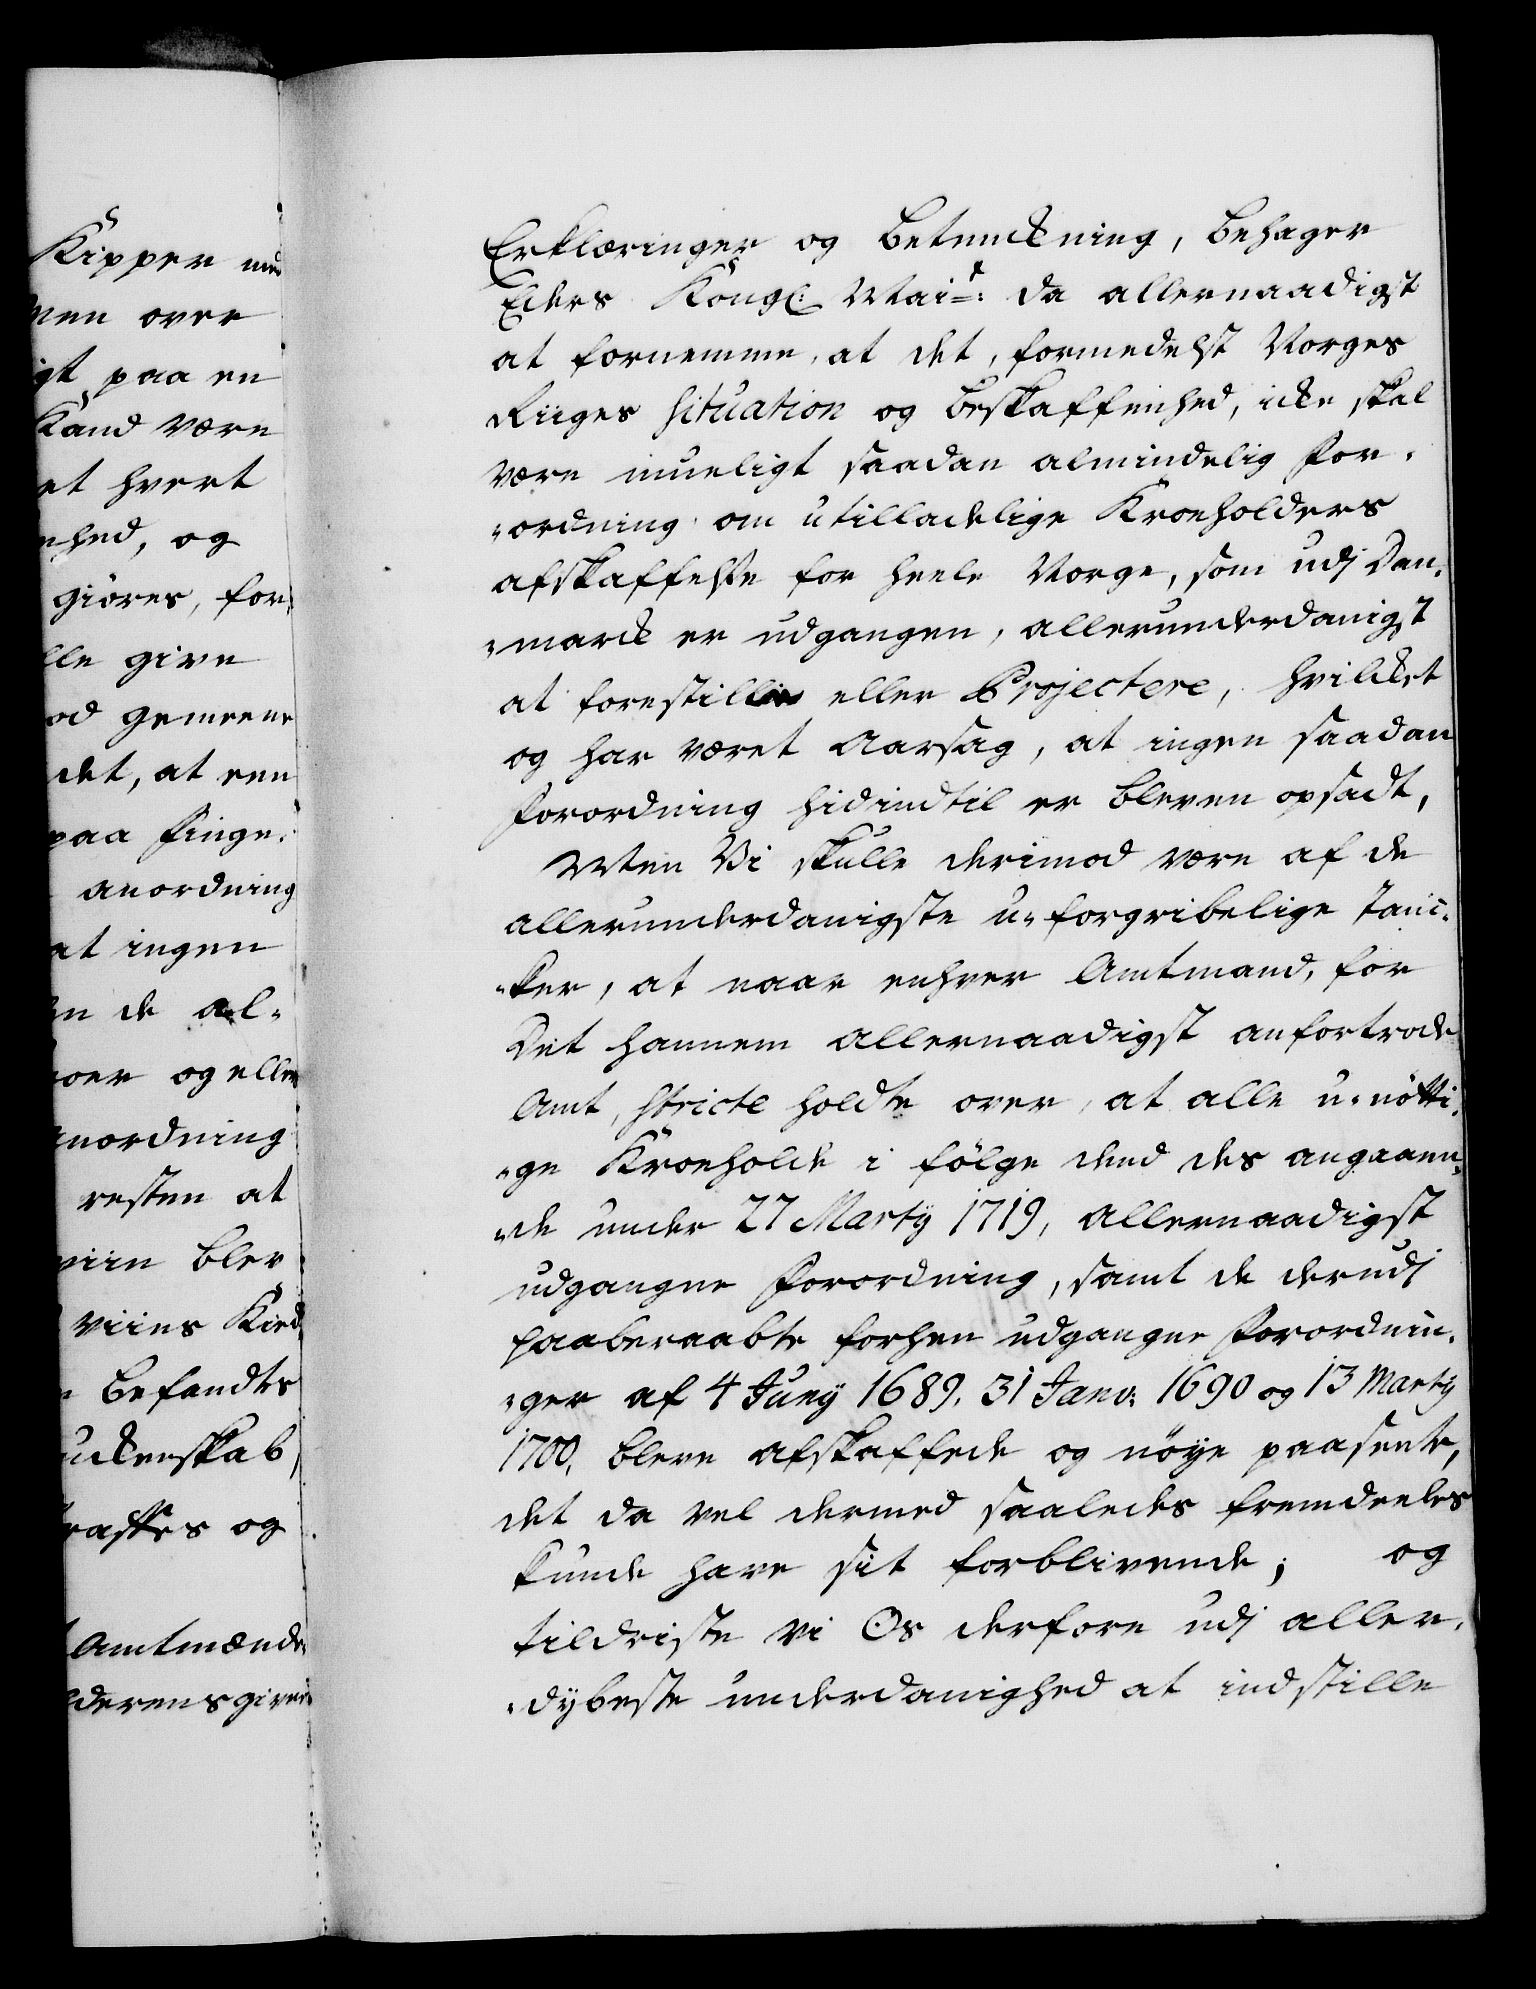 Kipper
men over
igt paa en
Kand være
et hvert
nhed, og
giøres, for¬
lle give
od gemeene
det, at een
paa finge¬
anordning
at ingen
en de al¬
og eller
anordning
resten at
viin blev
Viins Kied¬
befandtes
uckenskab,
raffes og
Amtmænde¬
derens given
Erklæringer og Betenckning, behager
Eders Kongl: Mai=t: da allernaadigst
at fornemme, at det, formedelst Norges
Riiges Situation og beskaffenhed, icke skal
være mueligt saadan almindelig For¬
„ordning om utilladelige Kroeholders
afskaffelse for heele Norge, som udj Dan¬
„marck er udgangen, allerunderdanigst
at forestille eller Projectere, hvilcket
og har været Aarsag, at ingen saadan
Forordning hidindtil er bleven opsadt,
Men Vi skulle derimod være af de
allerunderdanigste u-forgribelige Tanc¬
„ker, at naar enhver Amtmand, for
Det hannem allernaadigst anfortroede
Amt, stricte holdte over, at alle u-nötti¬
„ge Kroeholde i fölge dend des angaaen¬
„de under 27 Martij 1719, allernaadigst
udgangne Forordning, samt de derudj
paaberaabte forhen udgangne Forordnin¬
„ger af 4 Junij 1689, 31 Janv: 1690 og 13 Martij
1700, bleve afskaffede og nöye paaseete,
det da vel dermed saaledes fremdeeles
kunde have sit forblivende; og
tildriste vi Os derfore udj aller¬
„dybeste underdanighed at indstille